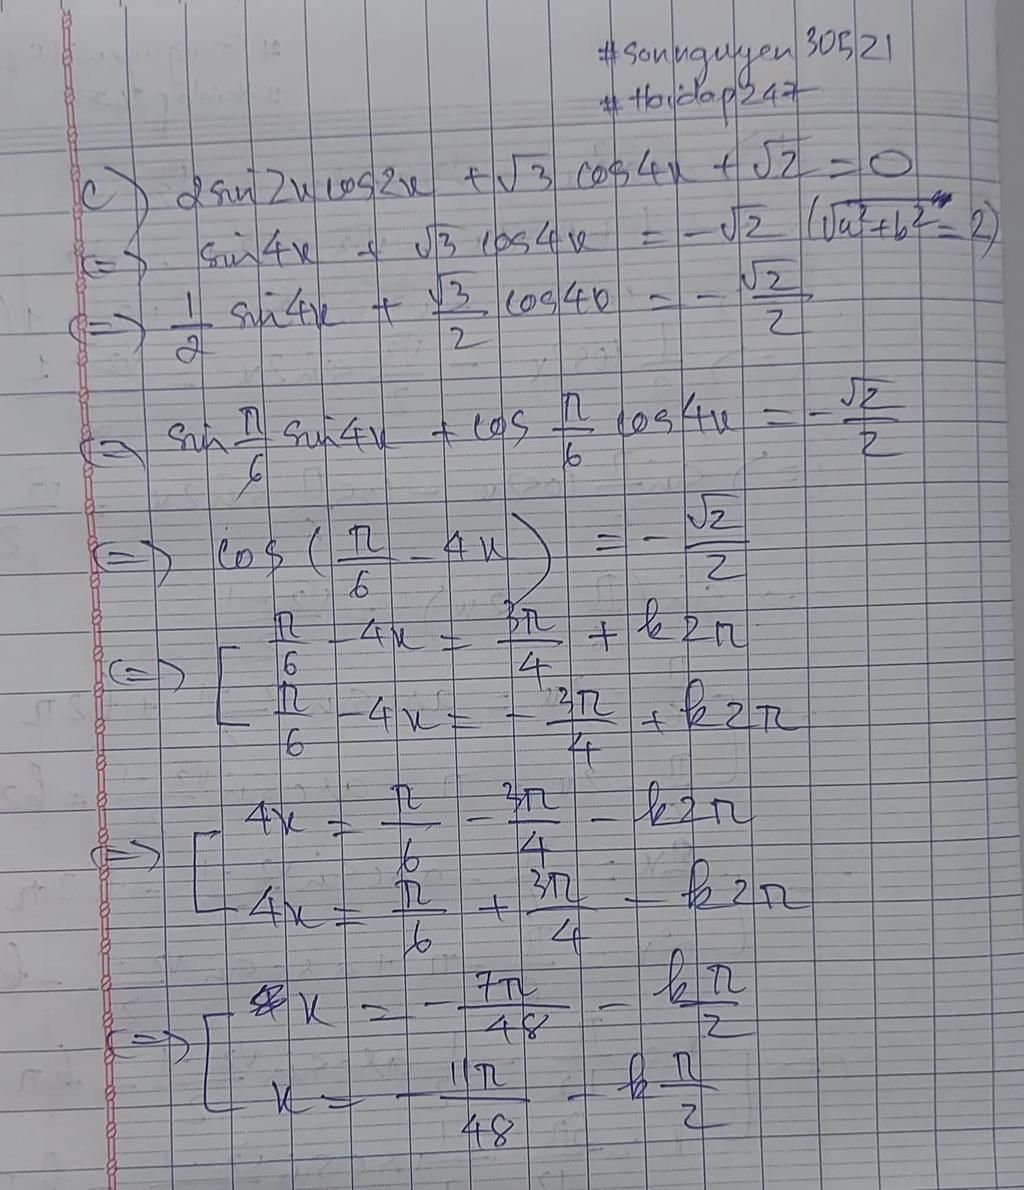 #sonnguyen30521
#hoidap247
c) 2sin2x cos2x + √3 cos4x + √2 = 0
<=> sin4x + √3 cos4x = -√2 (√a²+b² = 2)
<=> 1/2 sin4x + √3/2 cos4x = - √2/2
<=> sin π/6 sin4x + cos π/6 cos4x = - √2/2
<=> cos (π/6 - 4x) = - √2/2
<=> [ π/6 - 4x = 3π/4 + k2π
π/6 - 4x = - 3π/4 + k2π
<=> [ 4x = π/6 - 3π/4 - k2π
4x = π/6 + 3π/4 - k2π
<=> [ x = - 7π/48 - kπ/2
x = - 11π/48 - k π/2